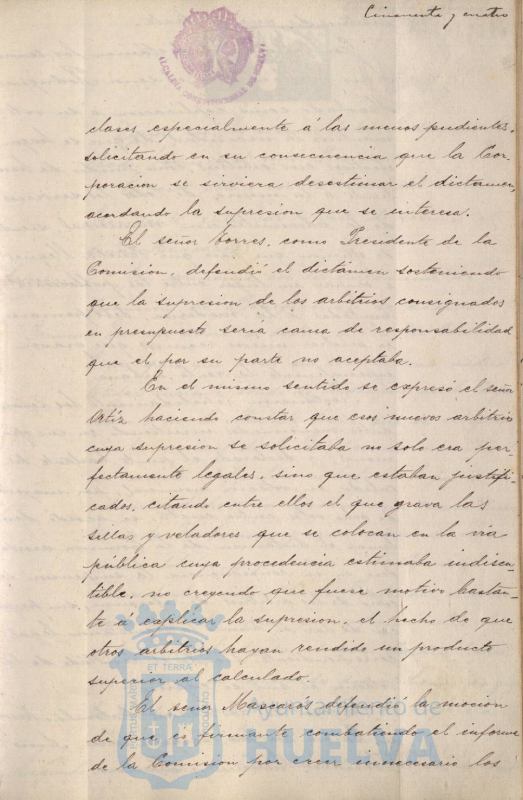 Cincuenta y cuatro
ALCALDIA CONSTITUCIONAL DE HUELVA
clases especialmente á las menos pudientes,
solicitando en su consecuencia que la Cor-
poracion se sirviera desestimar el dictamen,
acordando la supresion que se interesa.
El señor Torres, como Presidente de la
Comision, defendió el dictámen sosteniendo
que la supresion de los arbitrios consignados
en presupuesto seria causa de responsabilidad
que el por su parte no aceptaba.
En el mismo sentido se expresó el señor
Ortíz haciendo constar que esos nuevos arbitrios
cuya supresion se solicitaba no solo era per-
fectamente legales, sino que estaban justifi-
cados, citando entre ellos el que grava las
sillas y veladores que se colocan en la via
pública cuya procedencia estimaba indiscu-
tible, no creyendo que fuese motivo bastan-
te á explicar la supresion, el hecho de que
otros arbitrios hayan rendido un producto
superior al calculado.
El señor Mascarós defendió la mocion
de que es firmante combatiendo el informe
de la Comision por creer innecesario los
ET TERRÆ
Ayuntamiento de
HUELVA